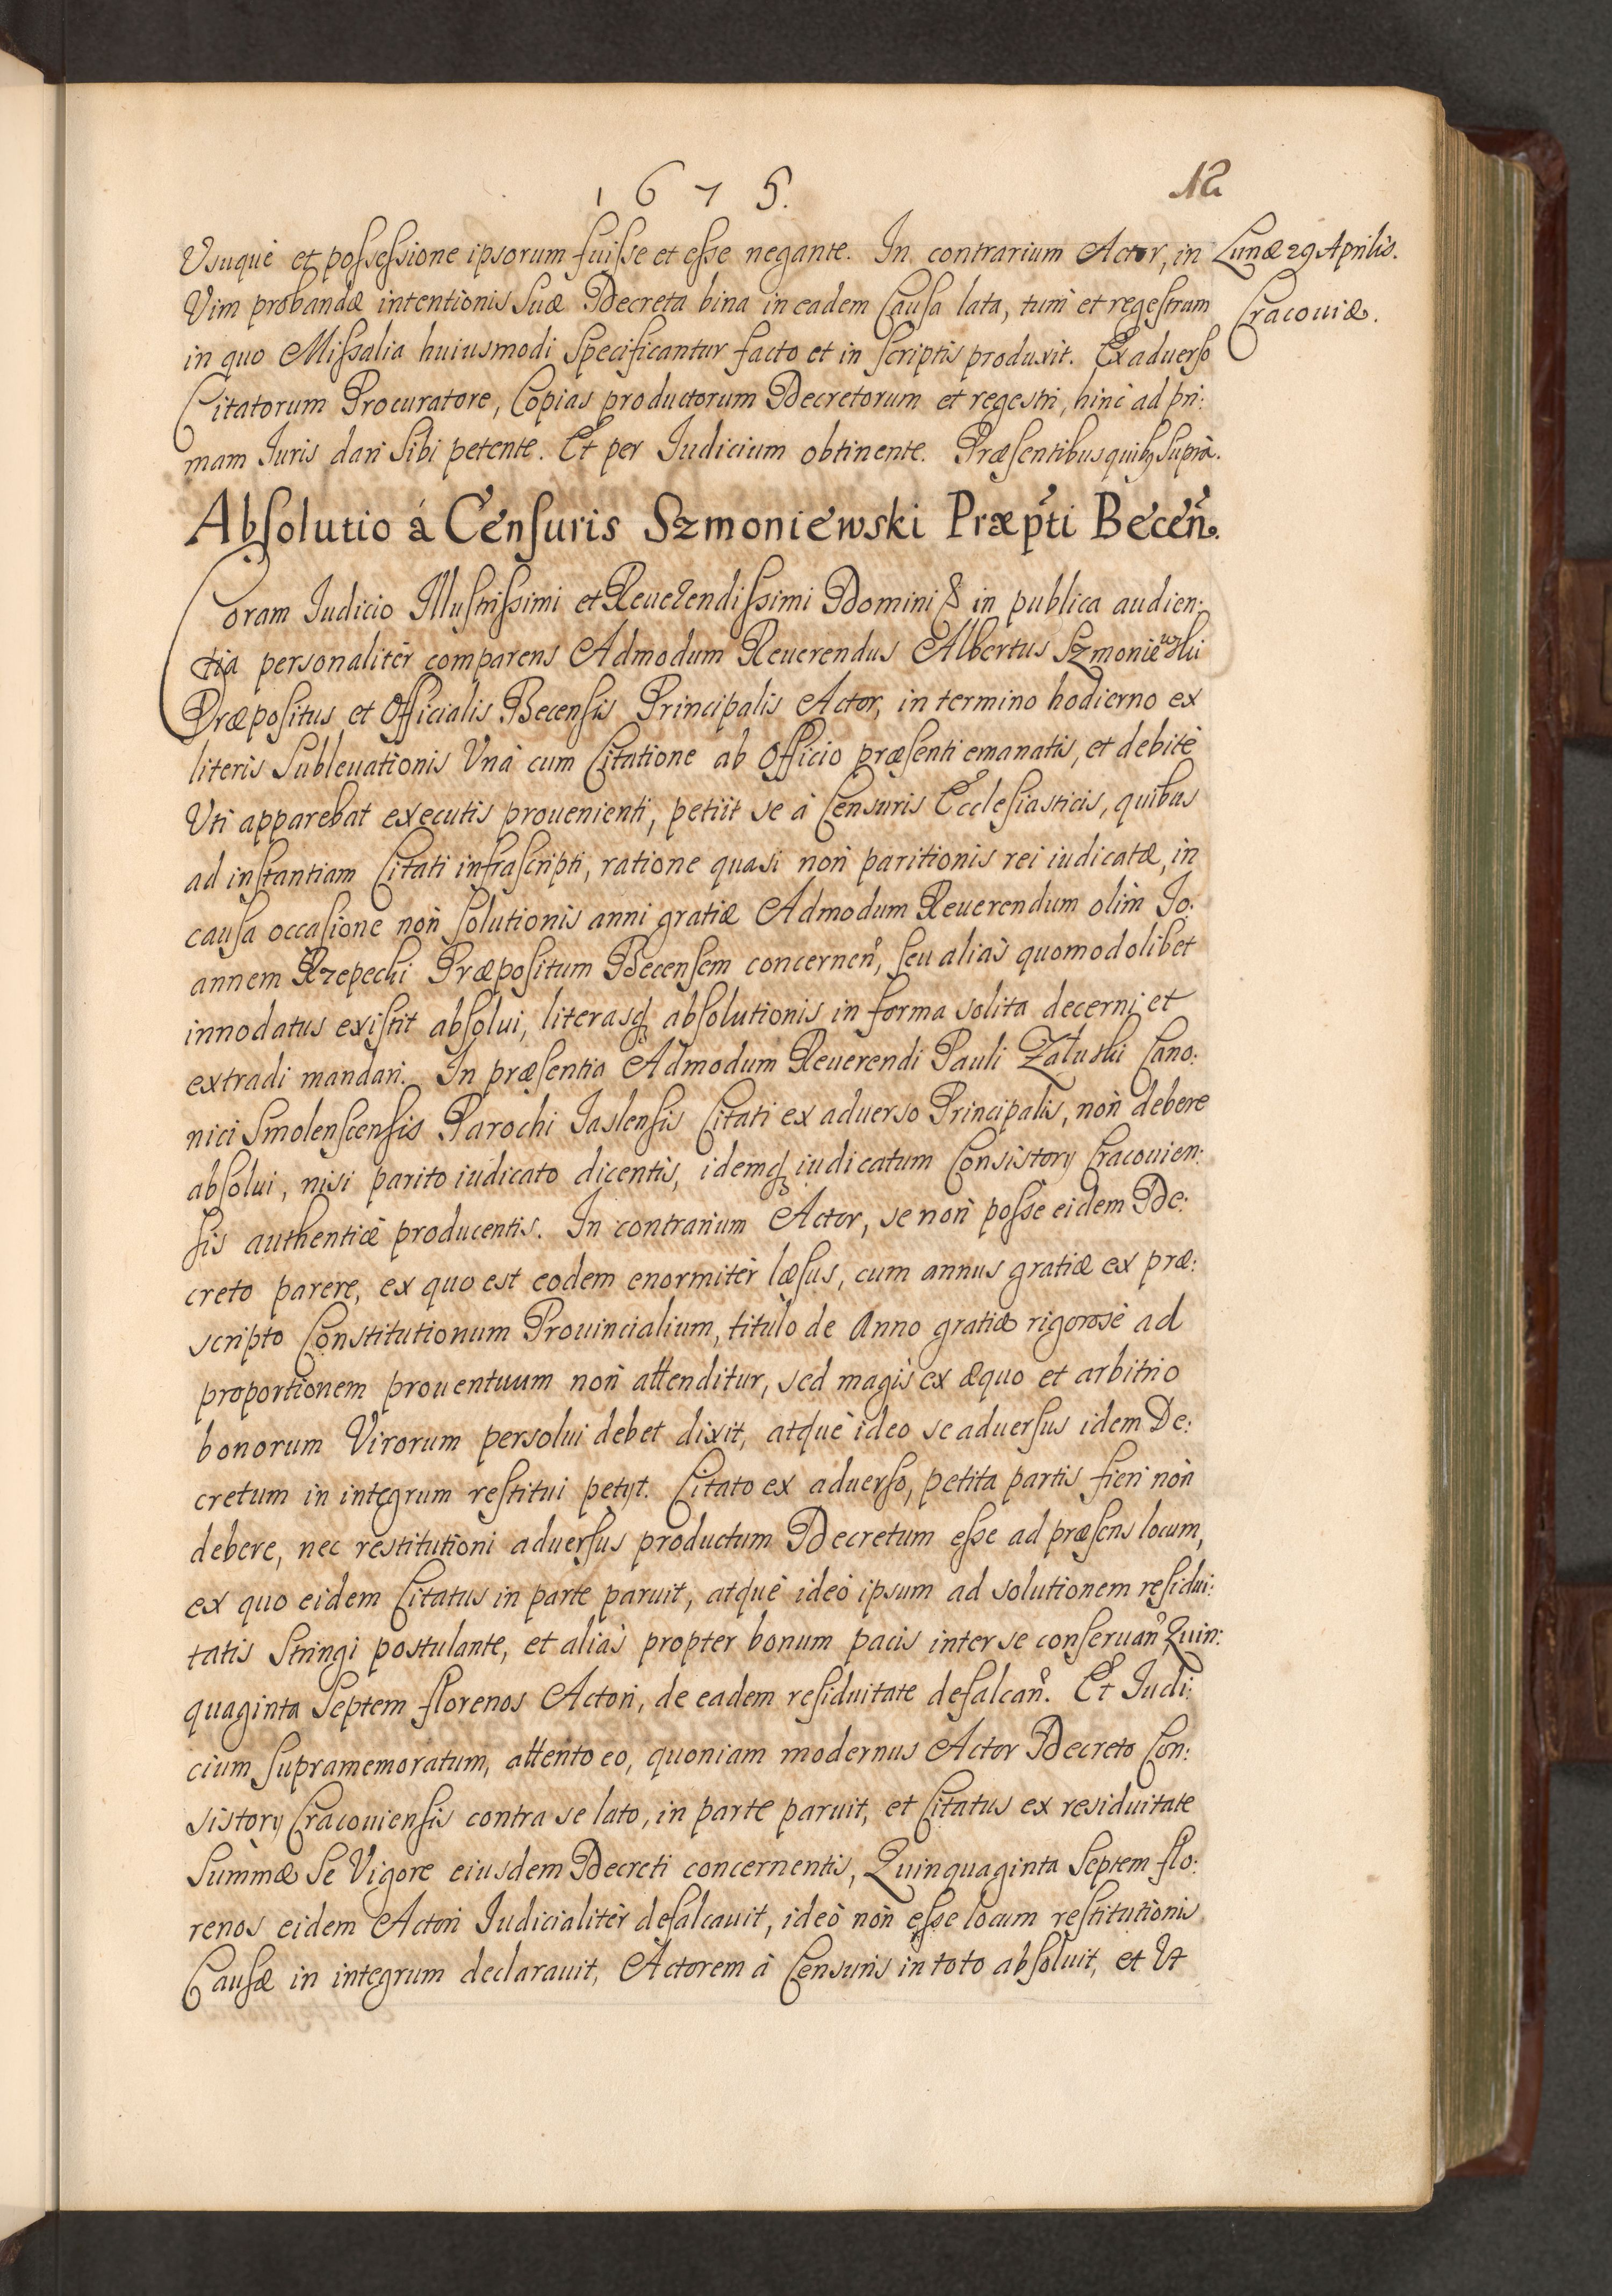 1675.
12
Usuque et possessione ipsorum fuisse et esse negante. In contrarium Actor, in
Lunæ 29 Aprilis.
Vim probandæ intentionis suæ Decreta bina in eadem Causa lata, tum et regestrum
Cracouiæ.
in quo Missalia huiusmodi specificantur facto et in scriptis produxit. Ex aduerso
Citatorum Procuratore, Copias productorum Decretorum et regestri, hinc ad pri:
mam Iuris dari sibi petente. Et per Iudicium obtinente. Præsentibus quibꝫ supra.
Absolutio á Censuris Szmoniewski Præpti Becen.
Coram Iudicio Illustrissimi et Reuerendissimi Domini & in publica audien:
tia personalitèr comparens Admodum Reuerendus Albertus Szmoniewski
Præpositus et Officialis Becensis Principalis Actor, in termino hodierno ex
literis subleuationis Unà cum Citatione ab Officio præsenti emanatis, et debitè
Uti apparebat executis prouenienti, petiit se à Censuris Ecclesiasticis, quibus
ad instantiam Citati infrascripti, ratione quasi non paritionis rei iudicatæ, in
causa occasione non solutionis anni gratiæ Admodum Reuerendum olim Jo:
annem Rzepecki Præpositum Becensem concernen, seu alias quomodolibet
innodatus existit absolui, literasqꝫ absolutionis in forma solita decerni et
extradi mandari. In præsentia Admodum Reuerendi Pauli Załuski Cano:
nici Smolenscensis Parochi Iaslensis Citati ex aduerso Principalis, non debere
absolui, nisi parito iudicato dicentis, idemqꝫ iudicatum Consistorij Cracouien:
sis authenticè producentis. In contrarium Actor, se non posse eidem De:
creto parere, ex quo est eodem enormitèr læsus, cum annus gratiæ ex præ:
scripto Constitutionum Prouincialium, titulo de Anno gratiæ rigorosè ad
proportionem prouentuum non attenditur, sed magis ex æquo et arbitrio
bonorum Virorum persolui debet dixit, atque ideo se aduersus idem De:
cretum in integrum restitui petijt. Citato ex aduerso, petita partis fieri non
debere, nec restitutioni aduersus productum Decretum esse ad præsens locum,
ex quo eidem Citatus in parte paruit, atque ideò ipsum ad solutionem residui:
tatis stringi postulante, et alias propter bonum pacis inter se conseruan, Quin:
quaginta Septem florenos Actori, de eadem residuitate defalcan. Et Iudi:
cium supramemoratum, attento eo, quoniam modernus Actor Decreto Con:
sistorij Cracouiensis contra se lato, in parte paruit, et Citatus ex residuitate
Summæ se Vigore eiusdem Decreti concernentis, Quinquaginta Septem flo:
renos eidem Actori Iudicialitèr defalcauit, ideò non esse locum restitutionis
Causæ in integrum declarauit, Actorem à Censuris in toto absoluit, et Ut